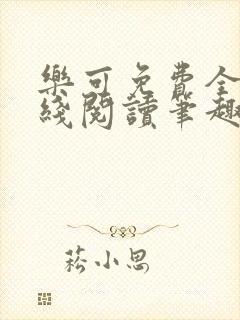 樂可免費全
綫閱讀筆趣
菘小思